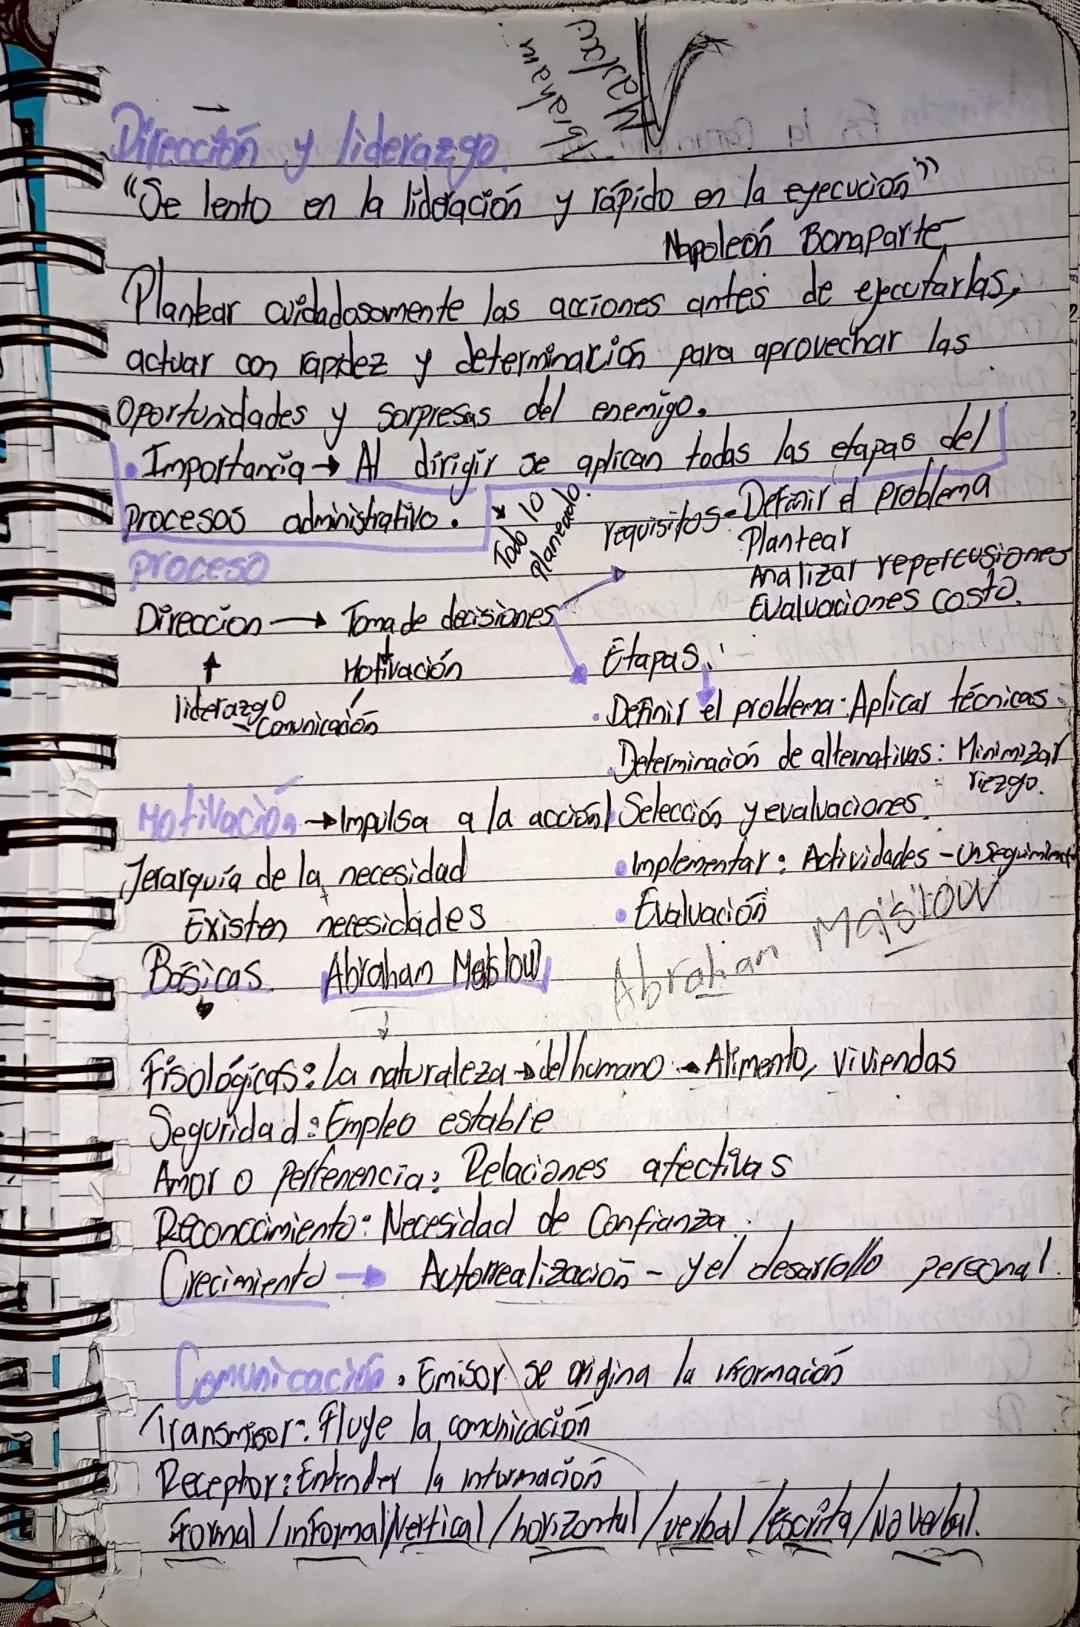 Abraham
Maslow
Dirección y liderazgo.
"Se lento en la lideración y rápido en la eyecucion"
Napoleón Bonaparte
Plantear cuidadosamente las acciones antes de ejecutarlas,
actuar con rapidez y determinación para aprovechar las
Oportunidades y sorpresas del enemigo.
• Importancia → Al dirigir se aplican todas las etapas del
procesos administrativo.
Todo lo
planeado.
requisitos - Definir el problema
Plantear
Analizar repercusiones
Evaluaciones costo.
proceso
Direccion → Toma de decisiones
Motivación
liderazgo
- Comunicación
Etapas:
. Definir el problema: Aplicar técnicas.
. Determinación de alternativas: Minimizar
riezgo.
Selección y evaluaciones.
• Implementar: Actividades - un seguimiento
• Evaluación
Abraham Maslow
Motivación → Impulsa a la acción
Jerarquía de la necesidad
Existen necesidades
Básicas. Abraham Maslow
Fisológicas: La naturaleza → del humano → Alimento, viviendas
Seguridad: Empleo estable
Amor o pertenencia: Relaciones afectivas
Reconocimiento: Necesidad de Confianza.
Crecimiento → Autorrealización - y el desarrollo personal.
Comunicación. Emisor se origina la información
Transmisor: Fluye la comunicación
Receptor: Entender la información
Formal / informal / Vertical / horizontal / verbal / Escrita / No verbal.